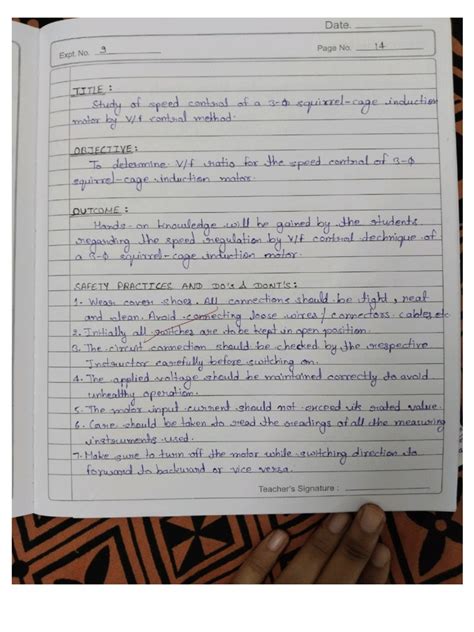 Date.
Expt. No. 9
Page No. 14
TITLE :
Study of speed control of a 3-Φ squirrel-cage induction
motor by V/f control method.
OBJECTIVE:
To determine V/f ratio for the speed control of 3-Φ
squirrel-cage induction motor.
OUTCOME :
Hands-on knowledge will be gained by the students
regarding the speed regulation by V/f control technique of
a 3-Φ squirrel-cage induction motor.
SAFETY PRACTICES AND DO'S & DONT'S :
1. Wear cover shoes. All connections should be tight, neat
and clean. Avoid connecting loose wires/ connectors, cables, etc
2. Initially all switches are to be kept in open position.
3. The circuit connection should be checked by the respective
Instructor carefully before switching on.
4. The applied voltage should be maintained correctly to avoid
unhealthy operation.
5. The motor input current should not exceed its rated value.
6. Care should be taken to read the readings of all the measuring
instruments used.
7. Make sure to turn off the motor while switching direction to
forward to backward or vice versa.
Teacher's Signature :